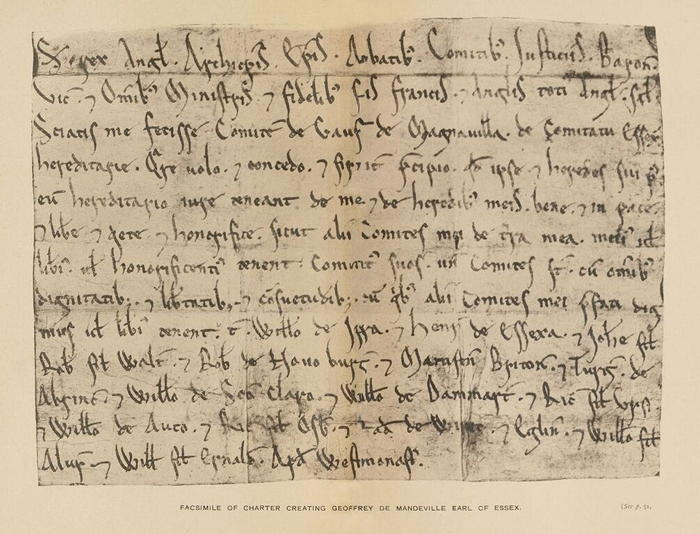 S. rex Angl. Archiepis. Epis. Abbatib' Comitib'. Justiciis. Baron.
Vic. ⁊ Omib' Ministris ⁊ fidelib' suis francis. ⁊ Anglis toti' Angl'. sal'.
Sciatis me fecisse Comitē de Gaufr' de Magnavilla. de Comitatu Essex.
hereditarie. Qre volo. ⁊ concedo. ⁊ firmit' p̄cipio. qd ipse ⁊ heredes sui p'
eū hereditario iure teneant de me ⁊ de heredib' meis. bene. ⁊ in pace.
⁊ libe ⁊ qete ⁊ honorifice. sicut alii Comites mei de t'ra mea. meli' ul'
libi'. ul' honorificenti' tenent. Comitat' suos. un' Comites st'. cū omib'
dignitatib; ⁊ lib'tatib; ⁊ c̄suetudib;. cū qb' alii Comites mei p̄fati dig
nius ul' libi' tenent. t'. Willo de Ipra. ⁊ Henr' de Essexa. ⁊ Johe fil'
Rob fil' Walt'. ⁊ Rob' de Novo burg'. ⁊ Mainfen' Briton. ⁊ Turg'. de
Abrinc' ⁊ Willo de Sco Claro. ⁊ Willo de Dammart'. ⁊ Ric' fil' Ursi.
⁊ Willo de Auco. ⁊ Ric' fil' Osb'. ⁊ Rad' de ⁊ Eglin'. ⁊ Willo fil'
Alur' ⁊ Will' fil' Ernald'. Apd' Westmonast'.
FACSIMILE OF CHARTER CREATING GEOFFREY DE MANDEVILLE EARL OF ESSEX.
[See p. 51.